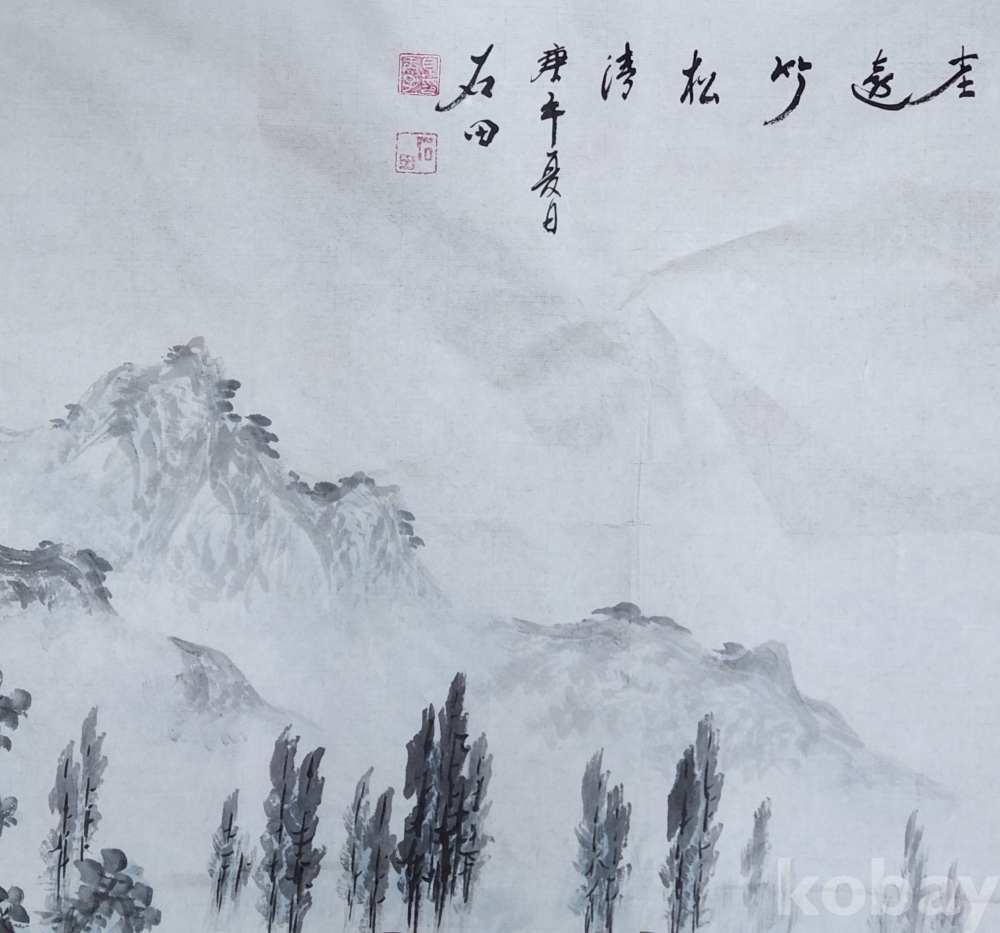 遠竹松清
庚午夏日
石田
kobay